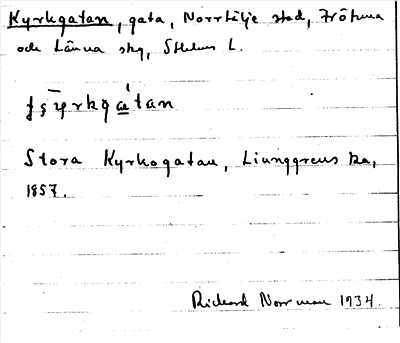 Kyrkgatan, gata, Norrtälje stad, Frötuna
och Länna skg, Sthlms L.
Stora Kyrkogatan, Ljunggrens ka,
1857.
Richard Norrman 1934.